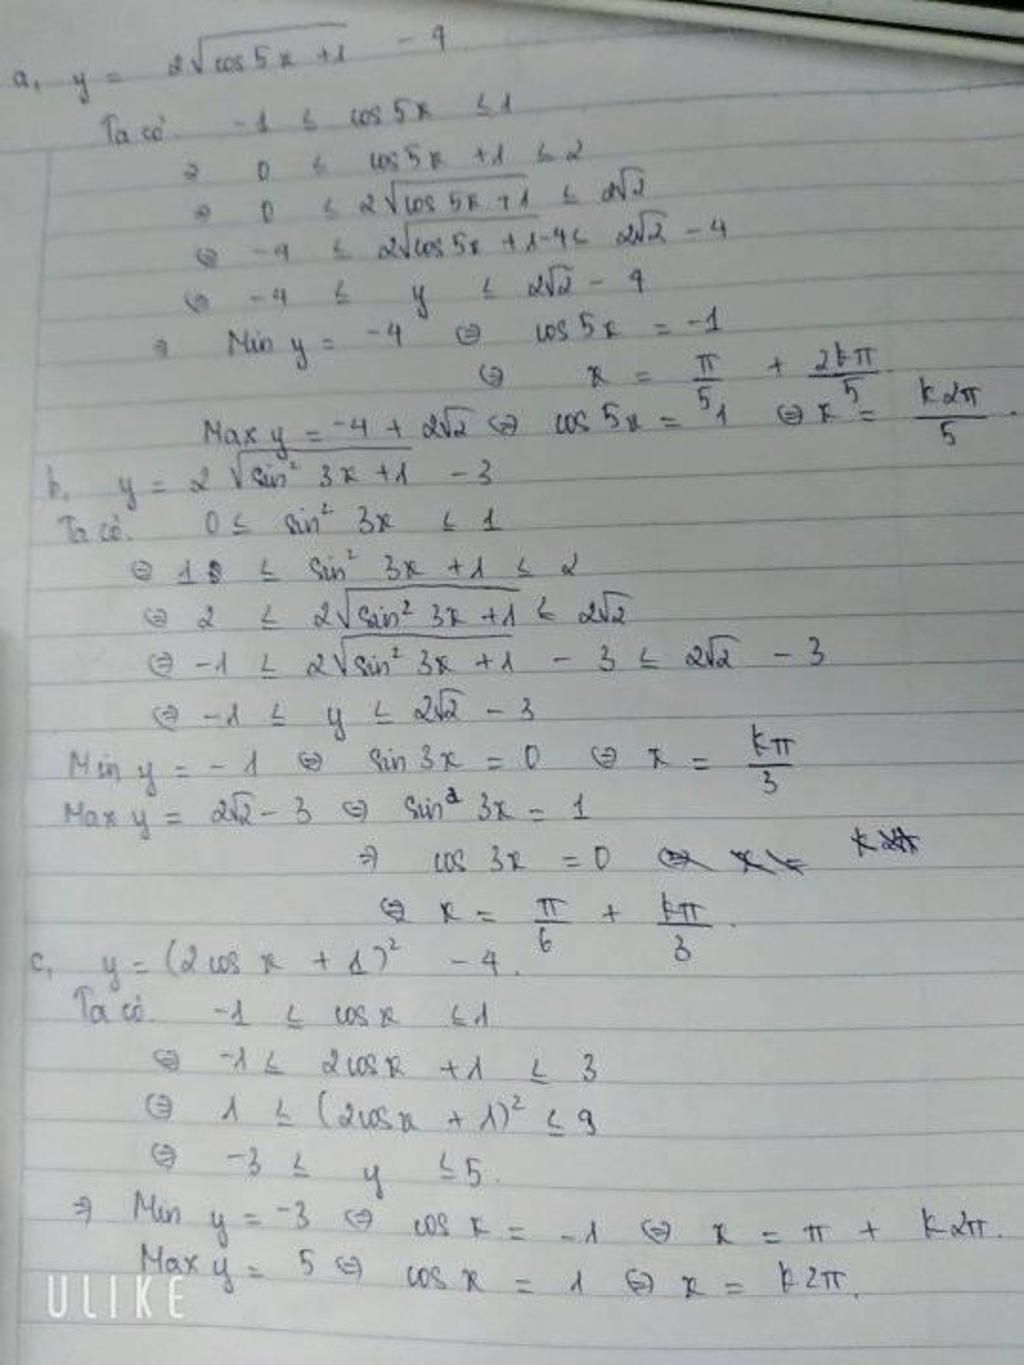 a, y = 2√(cos 5x + 1) - 4
Ta có -1 ≤ cos 5x ≤ 1
⇒ 0 ≤ cos 5x + 1 ≤ 2
⇒ 0 ≤ 2√(cos 5x + 1) ≤ 2√2
⇔ -4 ≤ 2√(cos 5x + 1) - 4 ≤ 2√2 - 4
⇔ -4 ≤ y ≤ 2√2 - 4
⇒ Min y = -4 ⇔ cos 5x = -1
⇔ x = π/5 + 2kπ/5
Max y = -4 + 2√2 ⇔ cos 5x = 1 ⇔ x = k2π/5.
b, y = 2√(sin² 3x + 1) - 3
Ta có. 0 ≤ sin² 3x ≤ 1
⇔ 1 ≤ sin² 3x + 1 ≤ 2
⇔ 2 ≤ 2√(sin² 3x + 1) ≤ 2√2
⇔ -1 ≤ 2√(sin² 3x + 1) - 3 ≤ 2√2 - 3
⇔ -1 ≤ y ≤ 2√2 - 3
Min y = -1 ⇔ sin 3x = 0 ⇔ x = kπ/3
Max y = 2√2 - 3 ⇔ sin² 3x = 1
⇒ cos 3x = 0
⇔ x = π/6 + kπ/3.
c, y = (2cos x + 1)² - 4.
Ta có. -1 ≤ cos x ≤ 1
⇔ -1 ≤ 2cos x + 1 ≤ 3
⇔ 1 ≤ (2cos x + 1)² ≤ 9
⇔ -3 ≤ y ≤ 5.
⇒ Min y = -3 ⇔ cos x = -1 ⇔ x = π + k2π.
Max y = 5 ⇔ cos x = 1 ⇔ x = k2π.
ULIKE